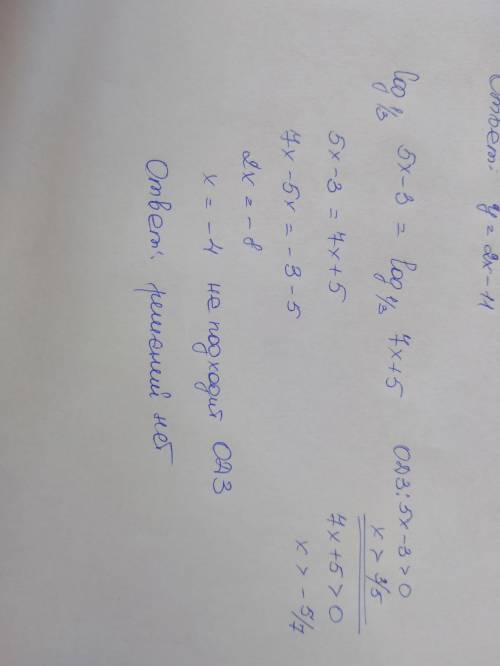 Ответ: y = 2x - 11
log 1/3 5x - 3 = log 1/3 7x + 5
5x - 3 = 7x + 5
7x - 5x = - 3 - 5
2x = - 8
x = - 4 не подходит ОДЗ
Ответ: решений нет
ОДЗ: 5x - 3 > 0
x > 3/5
7x + 5 > 0
x > - 5/7